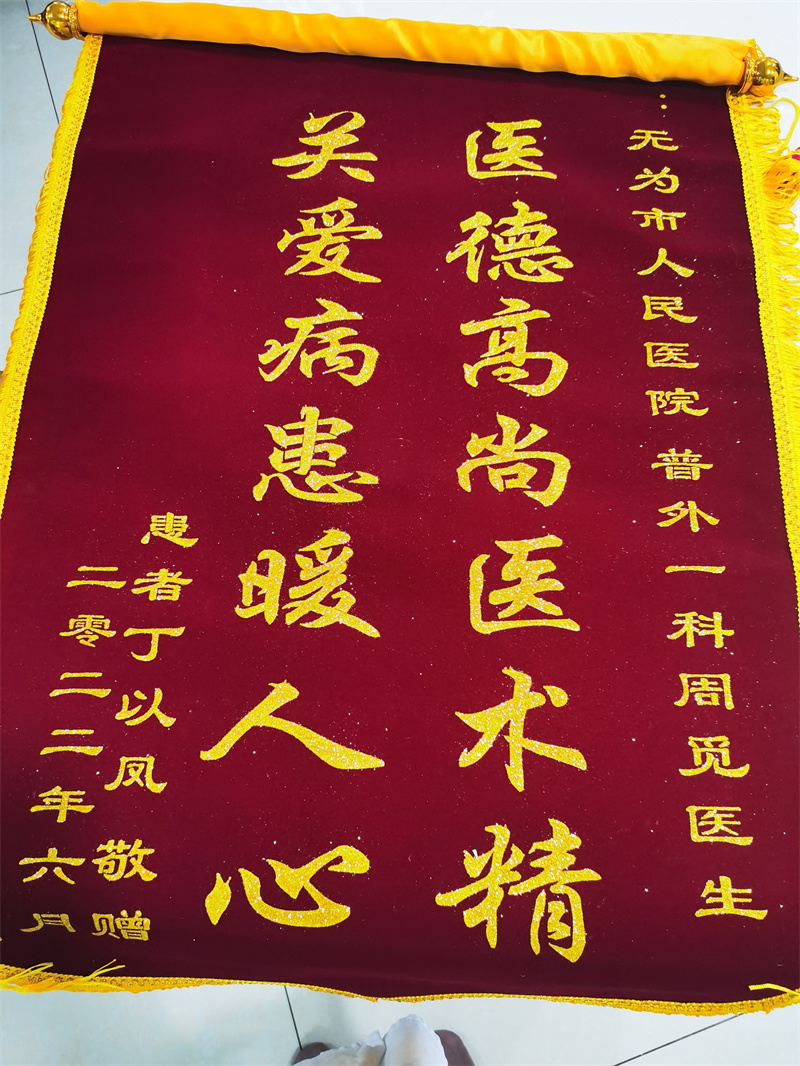 无为市人民医院 普外一科周觅医生
医德高尚医术精
关爱病患暖人心
患者丁以凤 敬赠
二零二二年六月